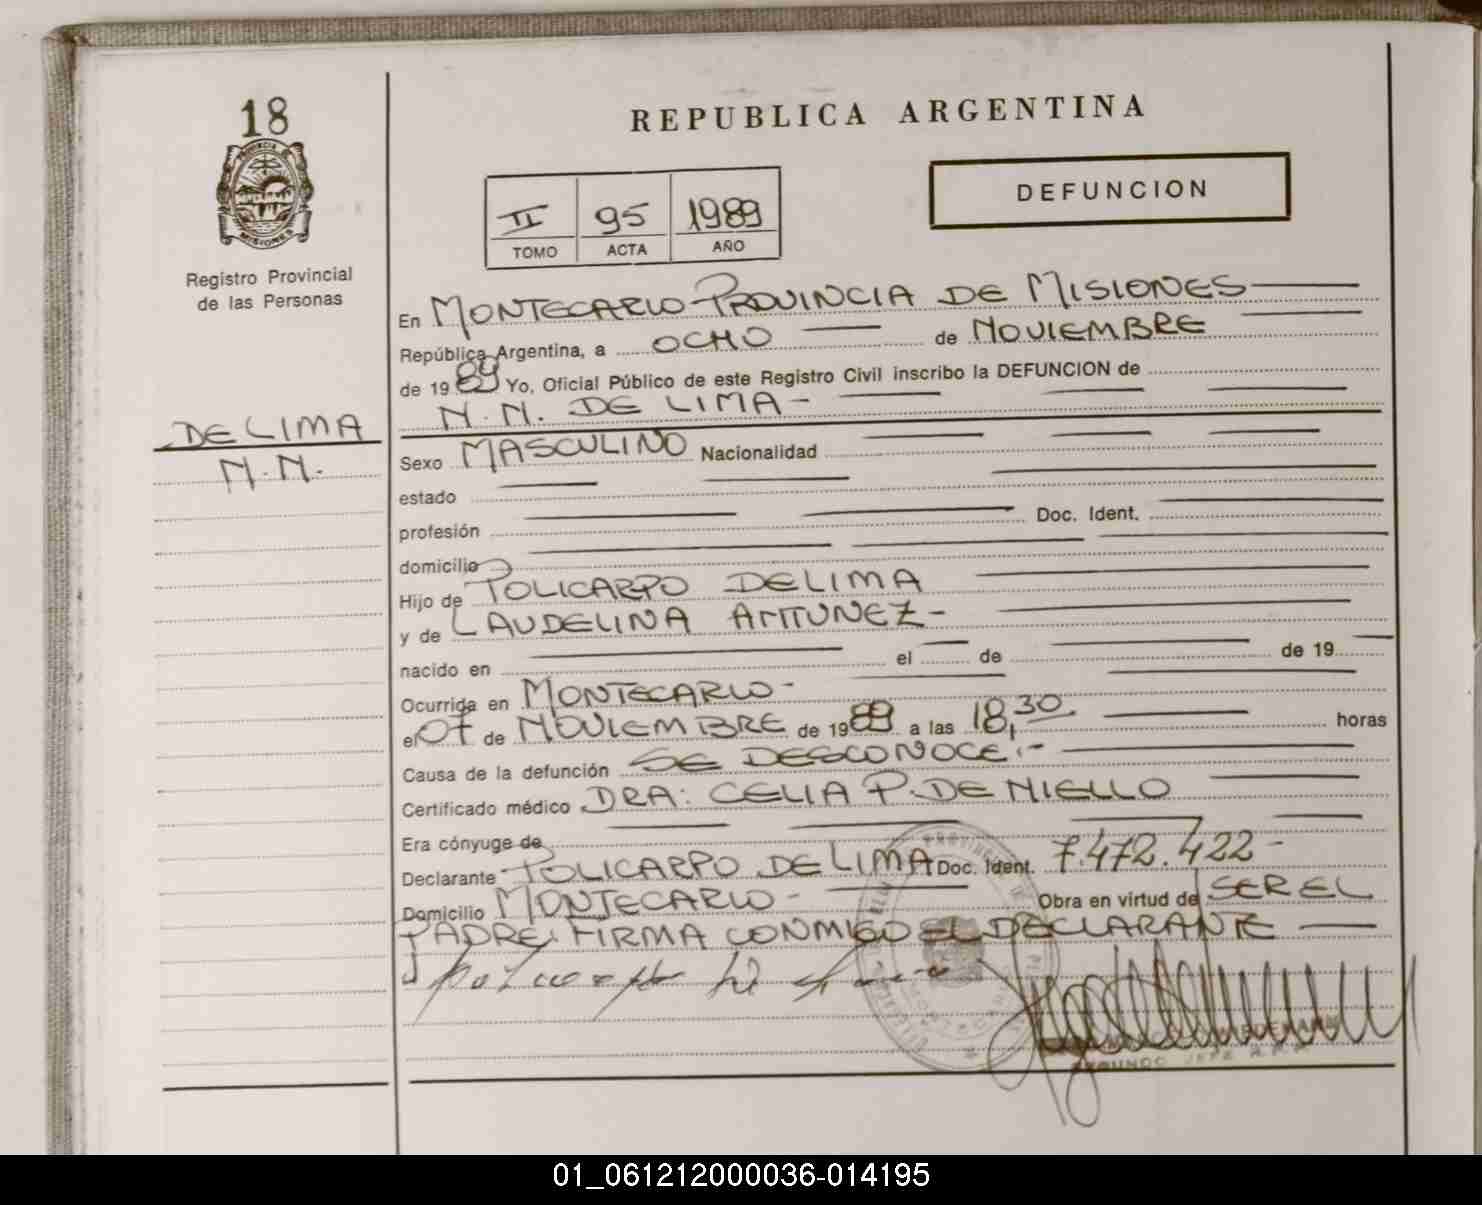 18
PROVINCIA DE
MISIONES
Registro Provincial
de las Personas
DE LIMA
N.N.
REPUBLICA ARGENTINA
II 95 1989
TOMO ACTA AÑO
DEFUNCION
En MONTECARLO - PROVINCIA DE MISIONES
República Argentina, a OCHO de NOVIEMBRE
de 1989 Yo, Oficial Público de este Registro Civil inscribo la DEFUNCION de
N.N. DE LIMA -
Sexo MASCULINO Nacionalidad
estado
profesión Doc. Ident.
domicilio
Hijo de POLICARPO DE LIMA
y de LAUDELINA ANTUNEZ -
nacido en el de de 19
Ocurrida en MONTECARLO -
el 07 de NOVIEMBRE de 1989 a las 18,30 horas
Causa de la defunción SE DESCONOCE.-
Certificado médico DRA: CELIA P. DE NIELLO
Era cónyuge de
Declarante POLICARPO DE LIMA Doc. Ident. 7.472.422 -
Domicilio MONTECARLO - Obra en virtud de SER EL
PADRE: FIRMA CONMIGO EL DECLARANTE
SEGUNDO JEFE
01_061212000036-014195